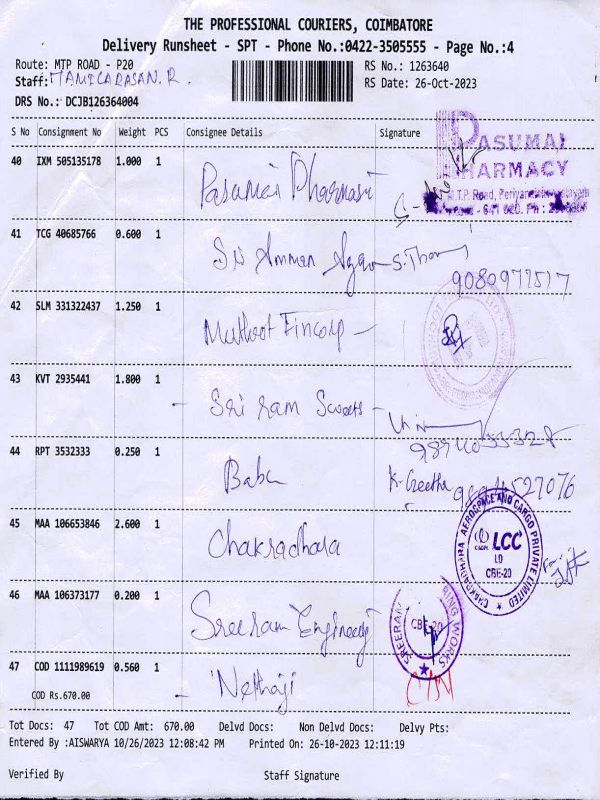 THE PROFESSIONAL COURIERS, COIMBATORE
Delivery Runsheet - SPT - Phone No.:0422-3505555 - Page No.:4
Route: MTP ROAD - P20 RS No.: 1263640
Staff: MANICARASAN.R. RS Date: 26-Oct-2023
DRS No.: DCJB126364004
S No Consignment No Weight PCS Consignee Details Signature
40 IXM 505135178 1.000 1 Pasumai Pharmasi
PASUMAI
PHARMACY
M.T.P. Road,
41 TCG 40685766 0.600 1 Sri Amman
9080971517
42 SLM 331322437 1.250 1 Muthoot Fincorp -
43 KVT 2935441 1.800 1 - Sri ram Sweets -
44 RPT 3532333 0.250 1 Babu K. Geetha
45 MAA 106653846 2.600 1 Chakradhara
CHAKRADHARA AEROSPACE AND CARGO PRIVATE LIMITED
LCC
LD
CBE-20
46 MAA 106373177 0.200 1 Sreeram
SREERAM
CBE-20
WORKS
47 COD 1111989619 0.560 1 - Nethaji
COD Rs.670.00
Tot Docs: 47 Tot COD Amt: 670.00 Delvd Docs: Non Delvd Docs: Delvy Pts:
Entered By :AISWARYA 10/26/2023 12:08:42 PM Printed On: 26-10-2023 12:11:19
Verified By Staff Signature